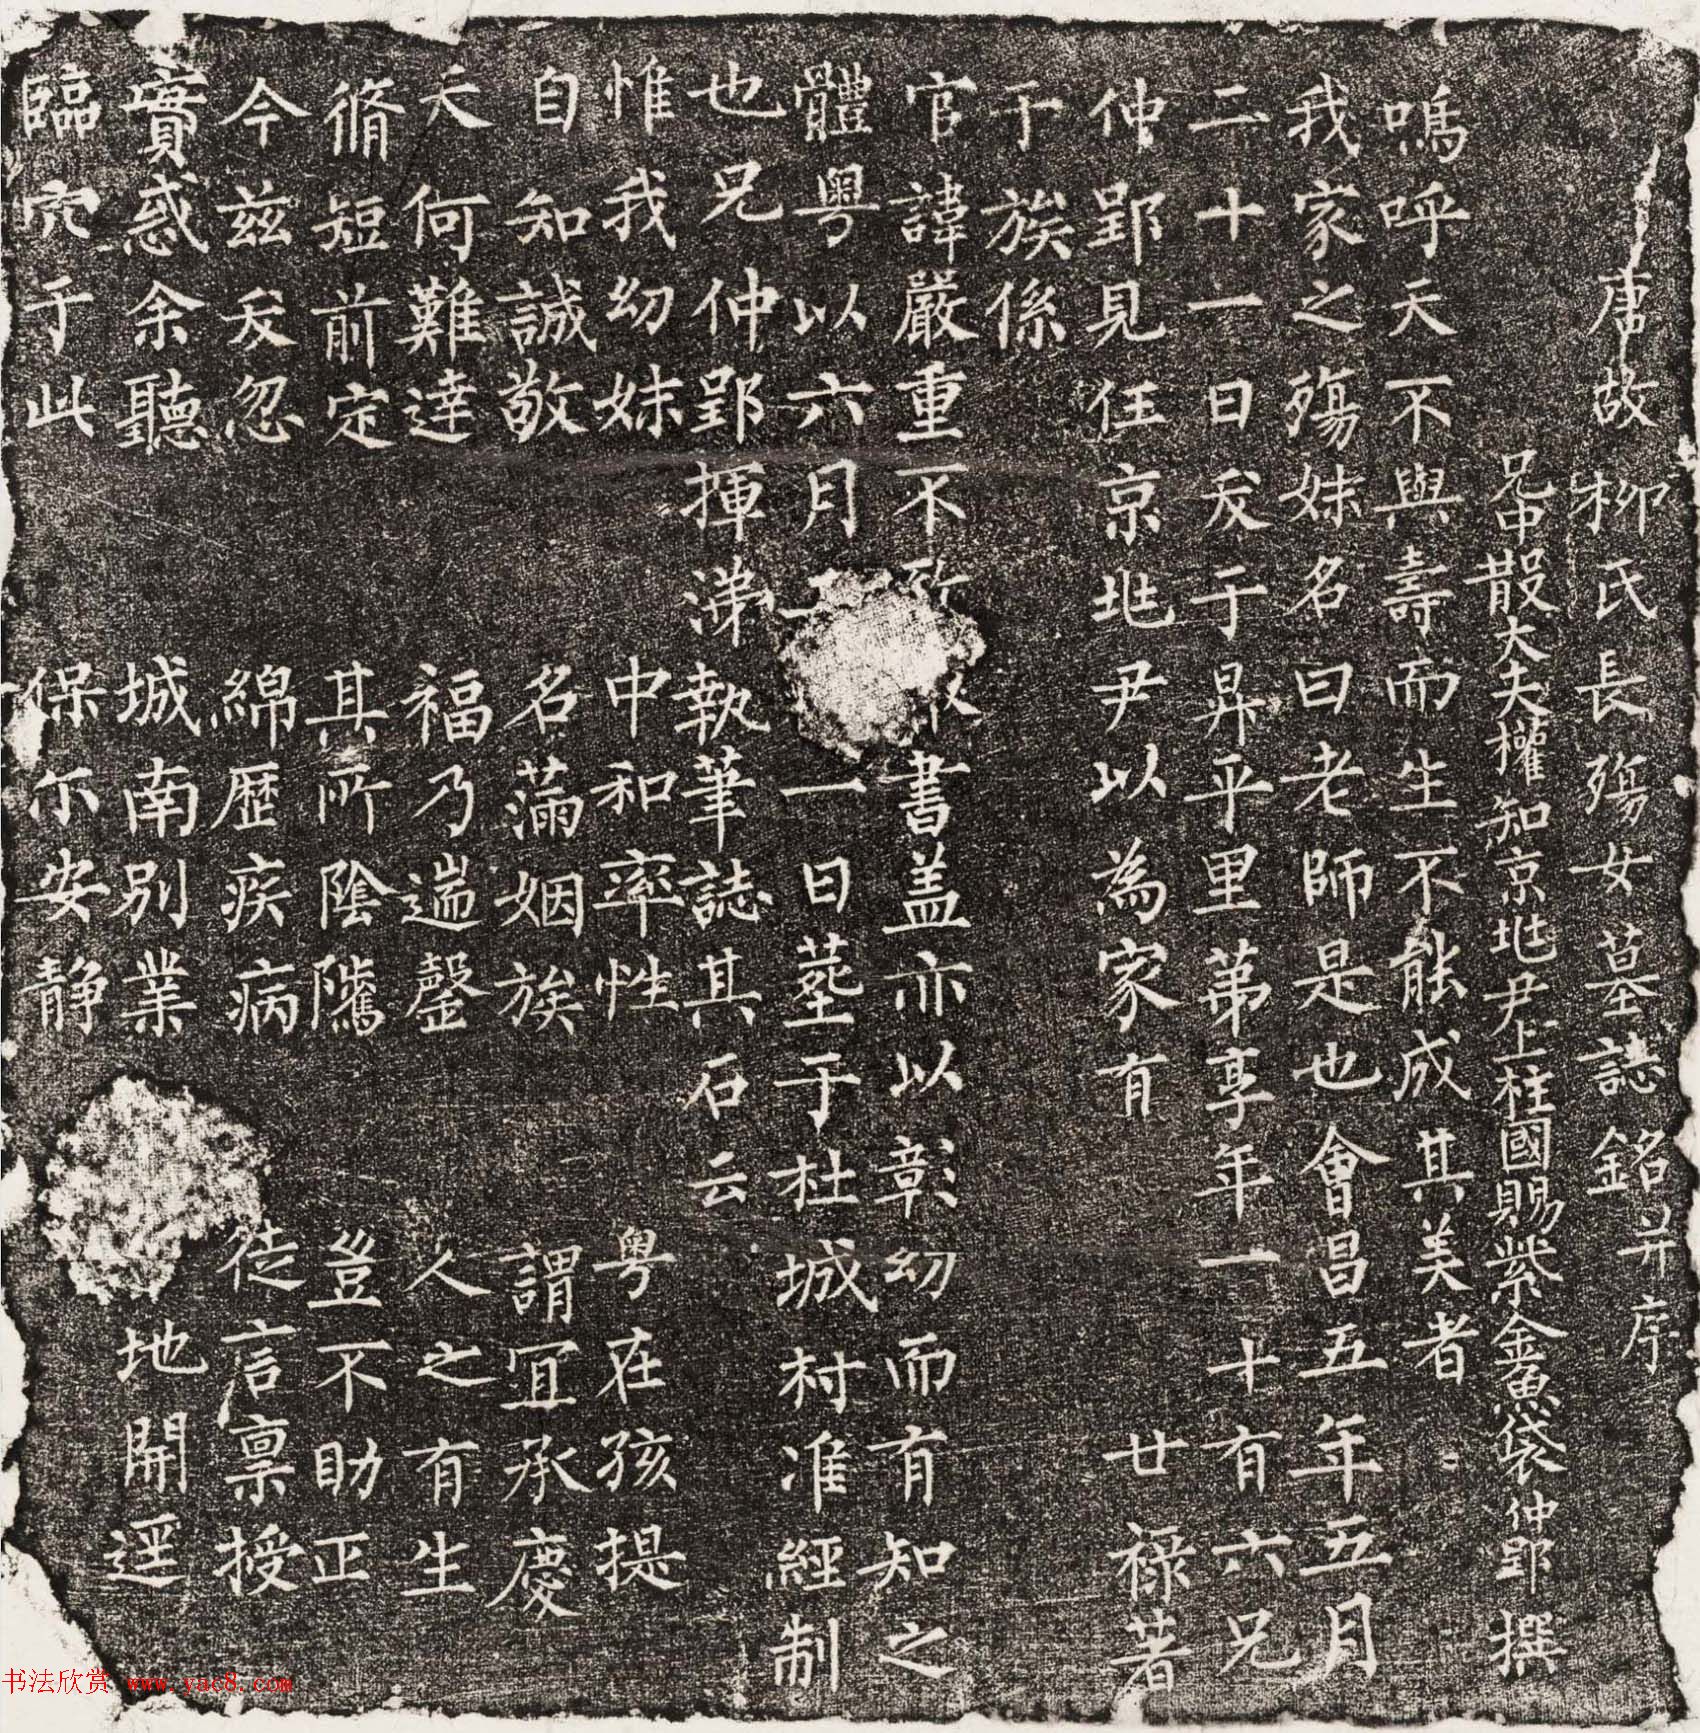 唐故柳氏長殤女墓誌銘并序
兄中散大夫權知京地尹上柱國賜紫金魚袋仲郢撰
嗚呼天不與壽而生不能成其美者
我家之殤妹名曰老師是也會昌五年五月
二十一日夭于昇平里第享年一十有六兄
仲郢見任京地尹以為家有 廿祿著
于族係
官諱嚴重不 書盖亦以彰幼而有知之
體粵以六月 一日塟于杜城村准經制
也兄仲郢揮涕執筆誌其石云
惟我幼妹 中和率性 粵在孩提
自知誠敬 名蒲姻族 謂宜承慶
天何難達 福乃遄罄 人之有生
脩短前定 其所陰隲 豈不助正
今兹夭忽 綿歷疾病 徒言稟授
實惑余聽 城南別業 地開逕
臨穴于此 保尓安靜
书法欣赏 www.yac8.com